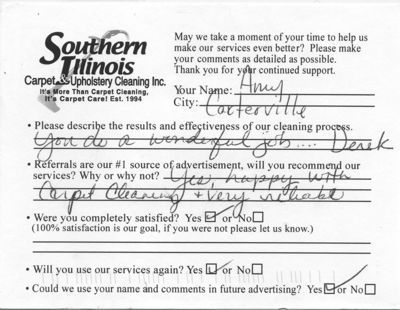 Southern
Illinois
Carpet & Upholstery Cleaning Inc.
It's More Than Carpet Cleaning,
It's Carpet Care! Est. 1994
May we take a moment of your time to help us
make our services even better? Please make
your comments as detailed as possible.
Thank you for your continued support.
Your Name: Amy
City: Carterville
• Please describe the results and effectiveness of our cleaning process.
You do a wonderful job.... Derek
• Referrals are our #1 source of advertisement, will you recommend our
services? Why or why not? Yes, happy with
Carpet Cleaning + very reliable
• Were you completely satisfied? Yes ☑ or No ☐
(100% satisfaction is our goal, if you were not please let us know.)
• Will you use our services again? Yes ☑ or No ☐
• Could we use your name and comments in future advertising? Yes ☑ or No ☐